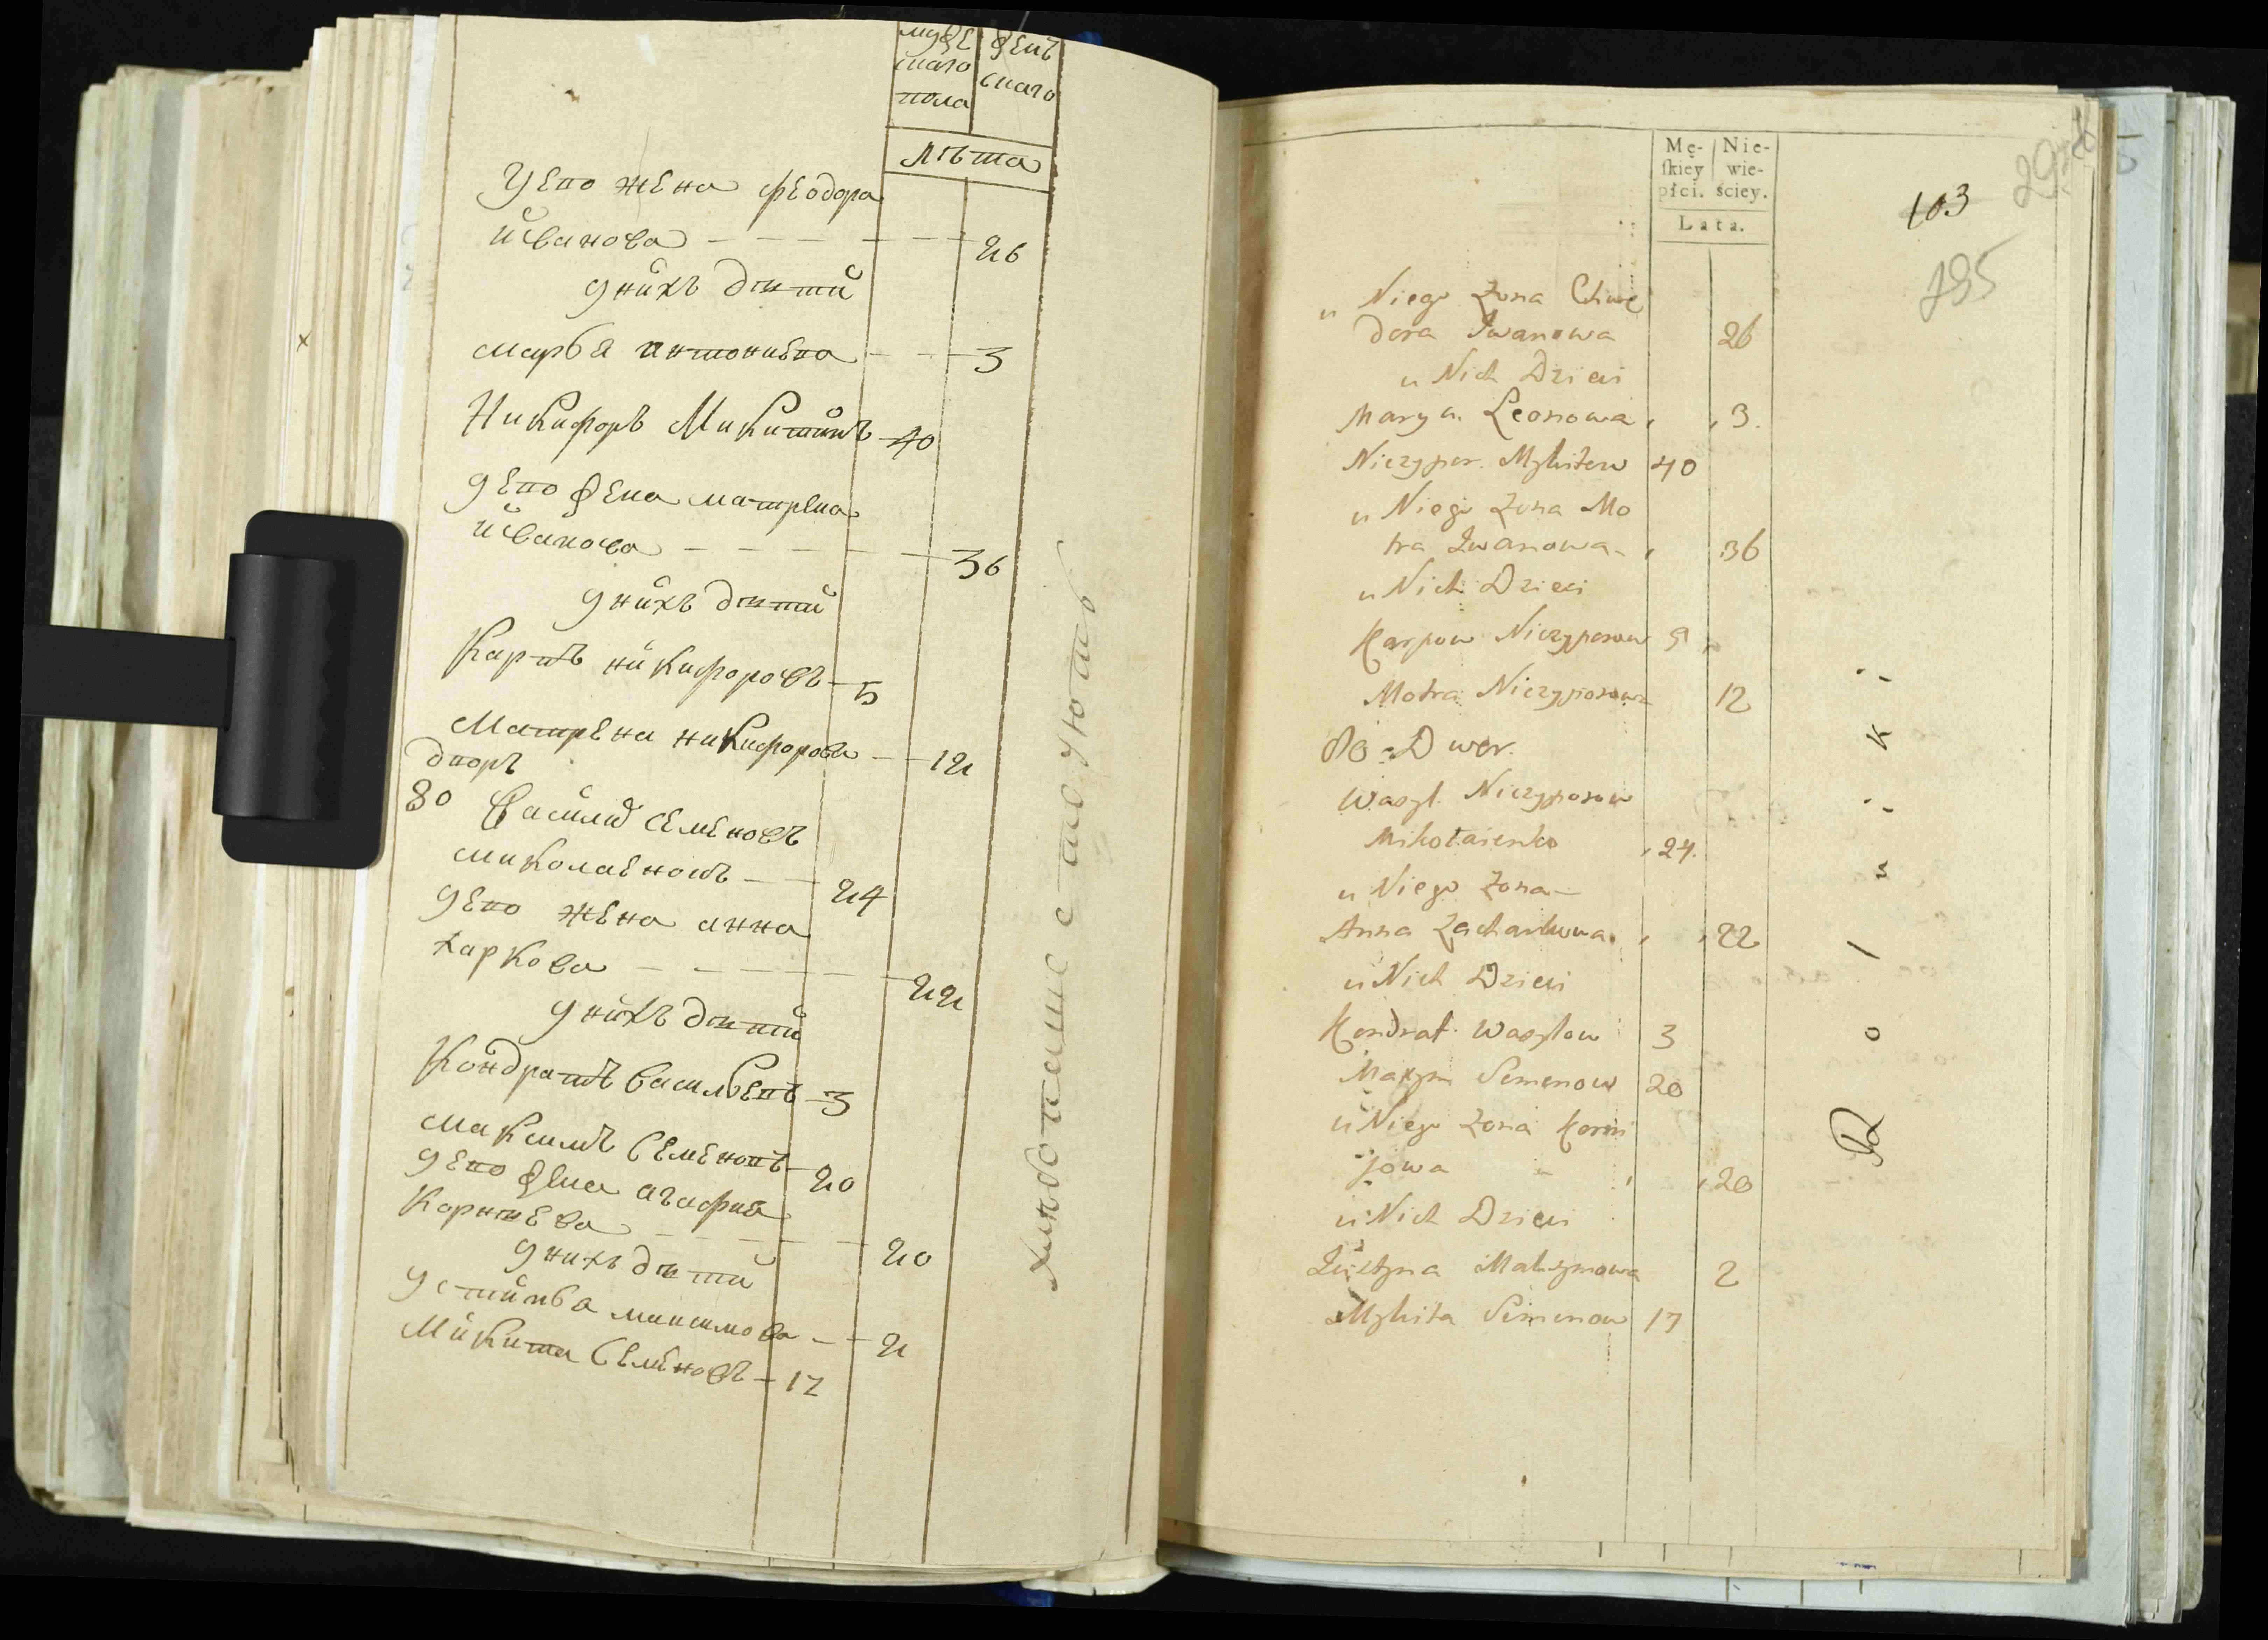 муже женъ
скаго скаго
пола
лѣта
У ево жена феодора
иванова 26
у нихъ дѣти
марья антоиева 3
Никифоръ Микитинъ 40
у ево жена матрена
иванова 36
у нихъ дѣти
Карпъ никифоровъ 5
Матрена никифорова 12
дворъ
80 Василий семеновъ
миколаенокъ 24
у ево жена анна
харкова 22
у нихъ дѣти
Кондратъ васильевъ 3
максимъ семеновъ 20
у ево жена агафия
Корнѣева 20
у нихъ дѣти
устинья максимова 2
Микита семеновъ 17
хлѣбопашествуютъ
Mę- Nie-
ſkiey wie-
płci. ściey.
Lata.
103
295
u Niego Żona Chwe
dora Iwanowa 26
u Nich Dzieci
Marya Leonowa 3
Niczypor Mykitow 40
u Niego Żona Mo
tra Iwanowa 36
u Nich Dzieci
Karpow Niczyporow 5
Motra Niczyporowa 12
80 Dwor.
Wasyl Niczyporow
Mikołaienko 24
u Niego Żona
Anna Zacharkowna 22
u Nich Dzieci
Kondrat Wasylow 3
Maxym Semenow 20
u Niego Żona Korni
jowa 20
u Nich Dzieci
Justyna Maksymowa 2
Mykita Semenow 17
Rolniki